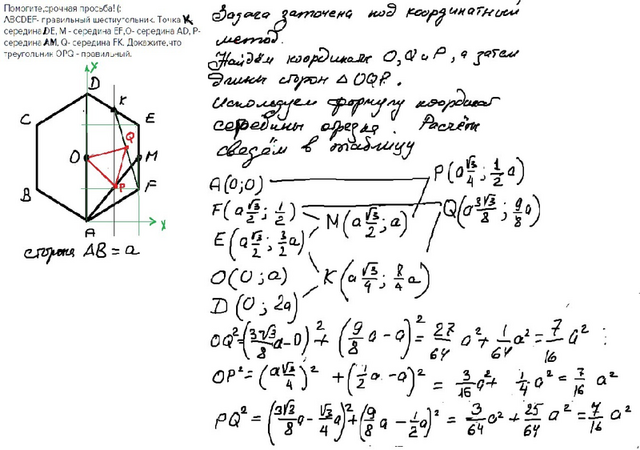 Помогите,срочная просьба!(:
ABCDEF- правильный шестиугольник. Точка K,
середина DE, M - середина EF,O- середина AD, P-
середина AM, Q- середина FK. Докажите,что
треугольник OPQ - правильный.
x
D
K
C
E
Q
O
M
P
B
F
A
x
сторона AB = a
Задача заточена под координатный
метод.
Найдём координаты O, Q и P, а затем
длины сторон Δ OQP.
Используем формулу координат
середины отрезка. Расчёты
сведём в таблицу
A(0;0)
P(a√3/4; 1/2 a)
F(a√3/2; 1/2)
M(a√3/2; a)
Q(a 3√3/8; 9/8 a)
E(a√3/2; 3/2 a)
O(0; a)
K(a√3/4; 8/4 a)
D(0; 2a)
OQ²=(3√3/8 a-0)²+(9/8 a-a)²=27/64 a²+1/64 a²=7/16 a²;
OP²=(a√3/4)²+(1/2 a-a)²=3/16 a²+1/4 a²=7/16 a²
PQ²=(3√3/8 a-√3/4 a)²+(9/8 a-1/2 a)²=3/64 a²+25/64 a²=7/16 a²